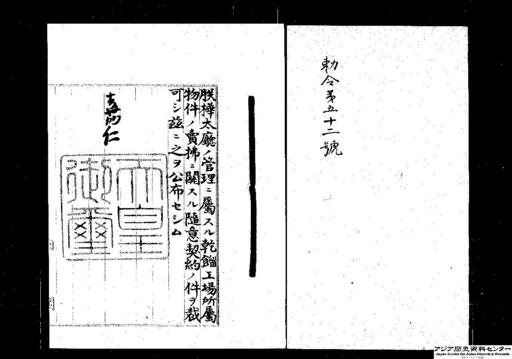 勅令第五十二號
朕樺太廳ノ管理ニ屬スル乾餾工場所屬
物件ノ賣拂ニ關スル隨意契約ノ件ヲ裁
可シ茲ニ之ヲ公布セシム
嘉仁
天皇御璽
アジア歴史資料センター
Japan Center for Asian Historical Records